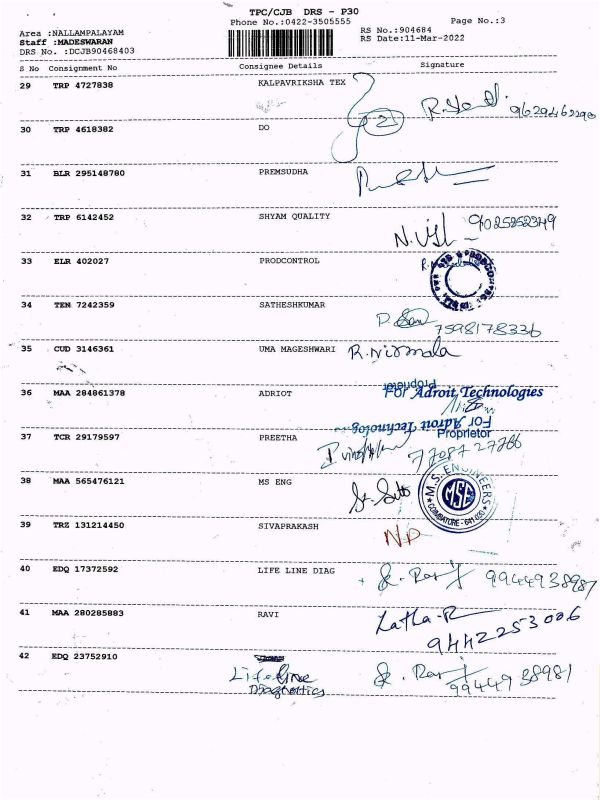 TPC/CJB DRS - P30
Phone No.:0422-3505555 Page No.:3
Area :NALLAMPALAYAM RS No.:904684
Staff :MADESWARAN RS Date:11-Mar-2022
DRS No. :DCJB90468403
S No Consignment No Consignee Details Signature
29 TRP 4727838 KALPAVRIKSHA TEX
9629462290
30 TRP 4618382 DO
31 BLR 295148780 PREMSUDHA
32 TRP 6142452 SHYAM QUALITY
9025252349
33 ELR 402027 PRODCONTROL
34 TEN 7242359 SATHESHKUMAR
7598178336
35 CUD 3146361 UMA MAGESHWARI R.Nirmala
36 MAA 284861378 ADRIOT For Adroit Technologies
Proprietor
For Adroit Technolog
Proprietor
37 TCR 29179597 PREETHA 7708727266
38 MAA 565476121 MS ENG
M.S. ENGINEERS
MSE
COIMBATORE - 641 030
39 TRZ 131214450 SIVAPRAKASH NP
40 EDQ 17372592 LIFE LINE DIAG 9944938987
41 MAA 280285883 RAVI Latha-R
9442253006
42 EDQ 23752910
Life line
Diagnostics
9944938981